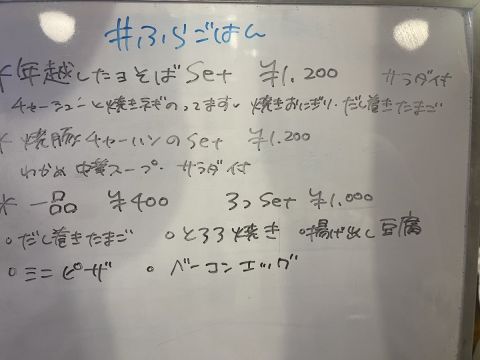 #ふらごはん
* 年越したヨそばSet ¥1,200 サラダ付
チャーシューと焼きネギのってます。焼きおにぎり・だし巻きたまご
* 焼豚チャーハンのSet ¥1,200
わかめ中華スープ・サラダ付
* 一品 ¥400 3つSet ¥1,000
・だし巻きたまご ・とろろ焼き ・揚げ出し豆腐
・ミニピザ ・ベーコンエッグ